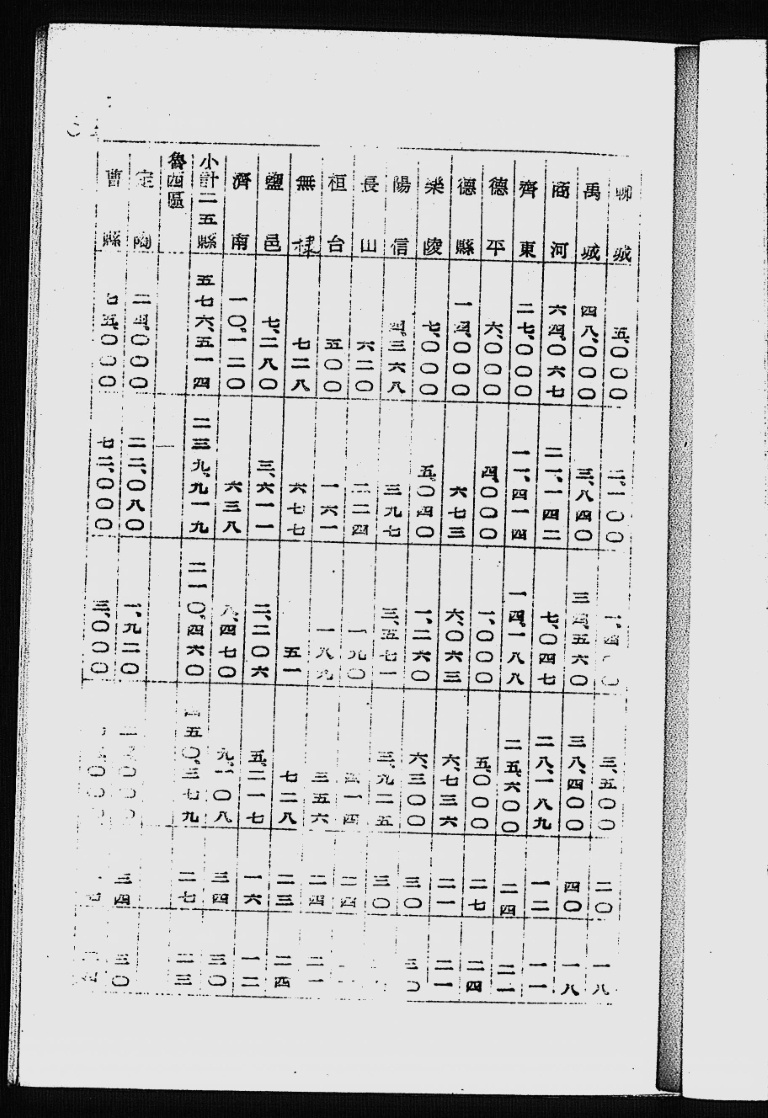 聊城 五、〇〇〇 二、一〇〇 三、五〇〇 二〇 一八
禹城 四八、〇〇〇 三、八四〇 三四、五六〇 三八、四〇〇 四〇 一八
商河 六四、〇六七 二一、一四二 七、〇四七 二八、一八九 一二 一一
齊東 二七、〇〇〇 一一、四一四 一四、一八八 二五、六〇〇 二四 二一
德平 六、〇〇〇 四、〇〇〇 一、〇〇〇 五、〇〇〇 二七 二四
德縣 一四、〇〇〇 六七三 六、〇六三 六、七三六 二一 二一
樂陵 七、〇〇〇 五、〇四〇 一、二六〇 六、三〇〇 三〇 三〇
陽信 四、三六八 三九七 三、五七一 三、九二五 三〇
長山 六二〇 二二四 一九〇 四一四 二四
桓台 五〇〇 一六一 一八九 三五六 二四 二一
無棣 七二八 六七七 五一 七二八 二三 二四
鹽邑 七、二八〇 三、六一一 二、二〇六 五、二一七 一六 一二
濟南 一〇、一二〇 六三八 八、四七〇 九、一〇八 三四 三〇
小計二五縣 五七六、五一四 二三九、九一九 二一〇、四六〇 四五〇、三七九 二七 二三
魯西區
定陶 二四、〇〇〇 二二、〇八〇 一、九二〇 三四 三〇
曹縣 七五、〇〇〇 七二、〇〇〇 三、〇〇〇